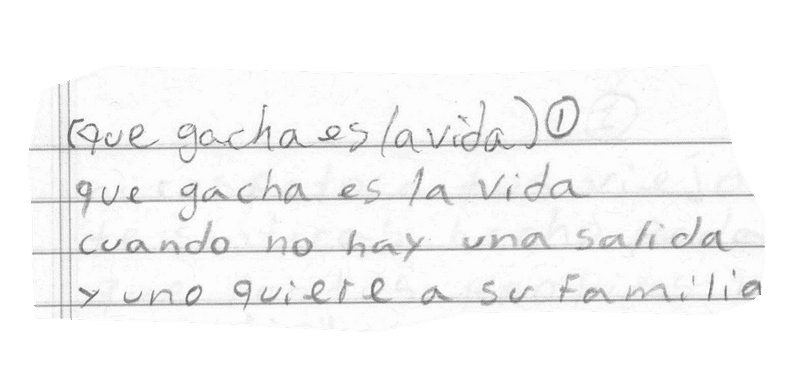 (que gacha es la vida) ①
que gacha es la vida
cuando no hay una salida
y uno quiere a su familia